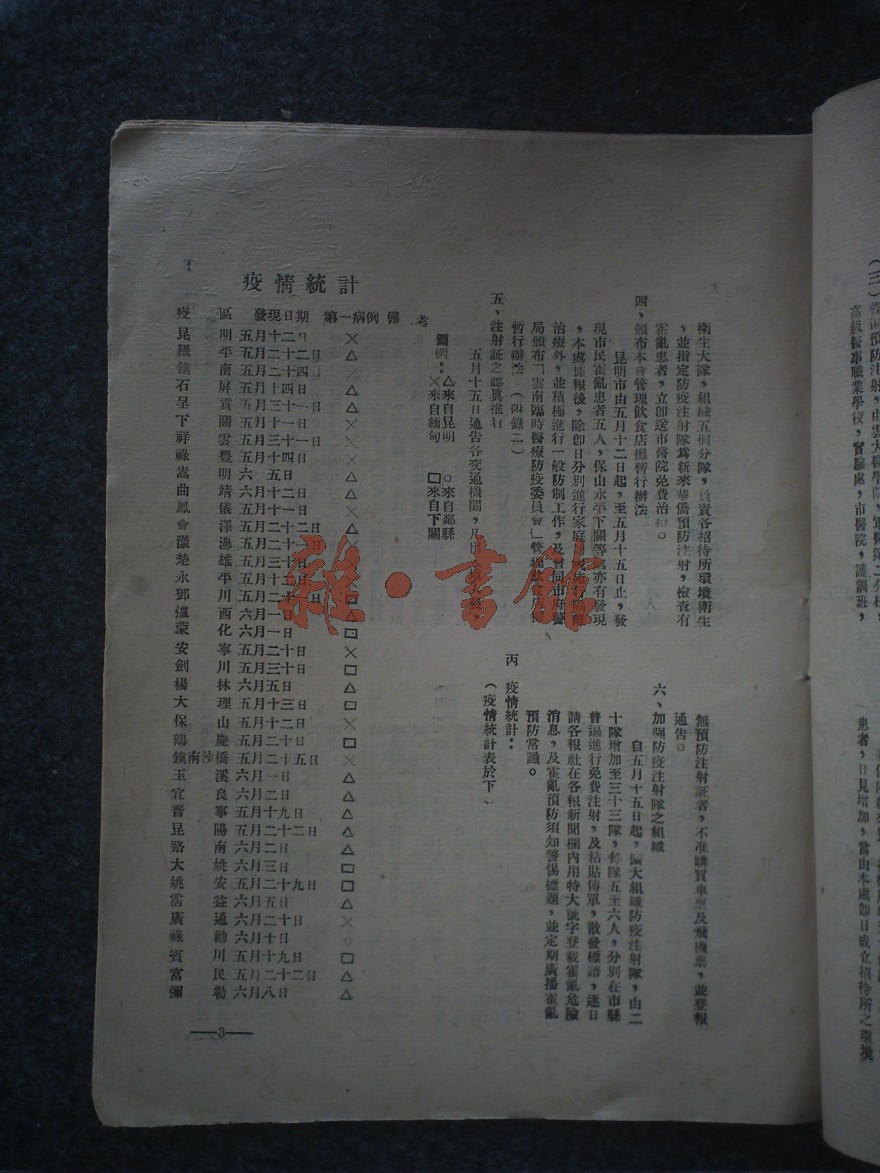 衛生大隊，組織五個分隊，負責各招待所環境衛生
，並指定防疫注射隊爲新來華僑預防注射，檢查有
霍亂患者，立卽送市醫院免費治
四、頒布本會管理飲食店攤暫行辦法
昆明市由五月十二日起，至五月十五日止，發
現市民霍亂患者五人，保山永平下關等處亦有發現
，本處據報後，除卽日分別進行家庭
治療外，並積極進行一般防制工作，及會同市商警
局頒布「雲南臨時醫療防疫委員會」管理飲食店
暫行辦法
五、注射証之認眞推行
五月十五日通告各交通機關，凡
無預防注射証者，不准購買車票及飛機票，並登報
通告。
六、加強防疫注射隊之組織
自五月十五日起，擴大組織防疫注射隊，由二
十隊增加至三十三隊，每隊五至六人，分別在市縣
普遍進行免費注射，及粘貼傳單，散發標語，逐日
請各報社在各報新聞欄內用特大號字登載霍亂危險
消息，及霍亂預防須知警惕標題，並定期廣播霍亂
預防常識。
丙 疫情統計：
（疫情統計表於下
疫情統計
疫區 發現日期 第一病例 備考
圖例：△來自昆明 ○來自鄰縣
×來自緬甸 □來自下關
昆明 五月十二日 ×
羅平 五月二十二日 △
鎮南 五月二十四日 ×
石屏 五月十四日 △
呈貢 五月三十一日 △
下關 五月十一日 ×
祥雲 五月三十一日 ×
祿豐 五月十四日 ×
嵩明 六 五日 △
曲靖 六月十二日 △
鳳儀 五月十一日 ×
會澤 五月二十二日 △
漾濞 五月二十一日
楚雄 五月三十日
永平 五月十二日
鄧川 五月二十二日 □
瀘西 六月一日 △
蒙化 六月一日 □
安寧 五月二十日 ×
劍川 五月三十日 □
楊林 六月五日 △
大理 五月十三日 □
保山 五月十二日 ×
鶴慶 五月二十日 □
鎮南沙橋 五月二十五日 ×
玉溪 六月一日 △
宜良 六月二日 △
晋寧 五月十九日 △
昆陽 五月二十二日 △
路南 六月二日 △
大姚 六月三日 □
姚安 五月二十九日 □
霑益 六月五日 △
廣通 五月二十日 ×
祿勸 六月十日 ○
賓川 五月十九日 □
富民 五月二十二日 △
彌勒 六月八日 △
—3—
雜·書館